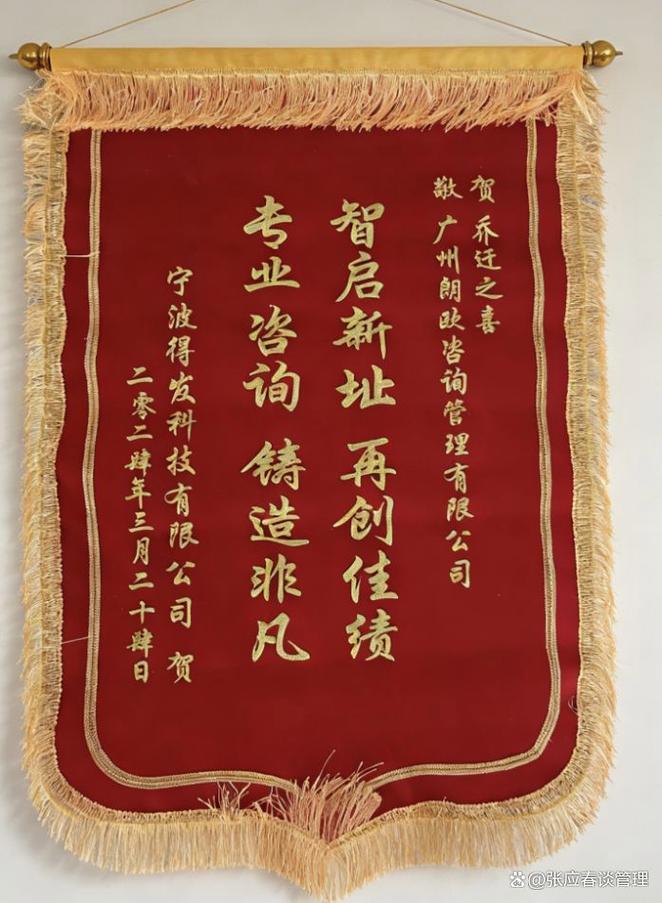 贺 乔迁之喜
敬 广州朗欧咨询管理有限公司
智启新址 再创佳绩
专业咨询 铸造非凡
宁波得发科技有限公司 贺
二零二肆年三月二十肆日
@张应春谈管理